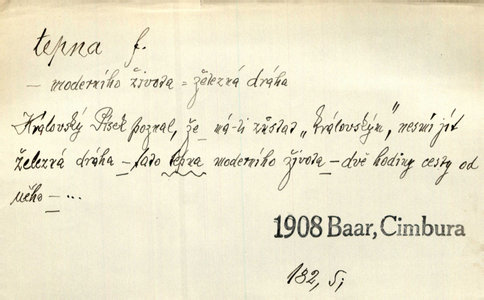 tepna f.
– moderního života = železná dráha
Královský Písek poznal, že má-li zůstat „královským", nesmí jít
železná dráha – tato tepna moderního života – dvě hodiny cesty od
něho – ...
1908 Baar, Cimbura
182, 5;